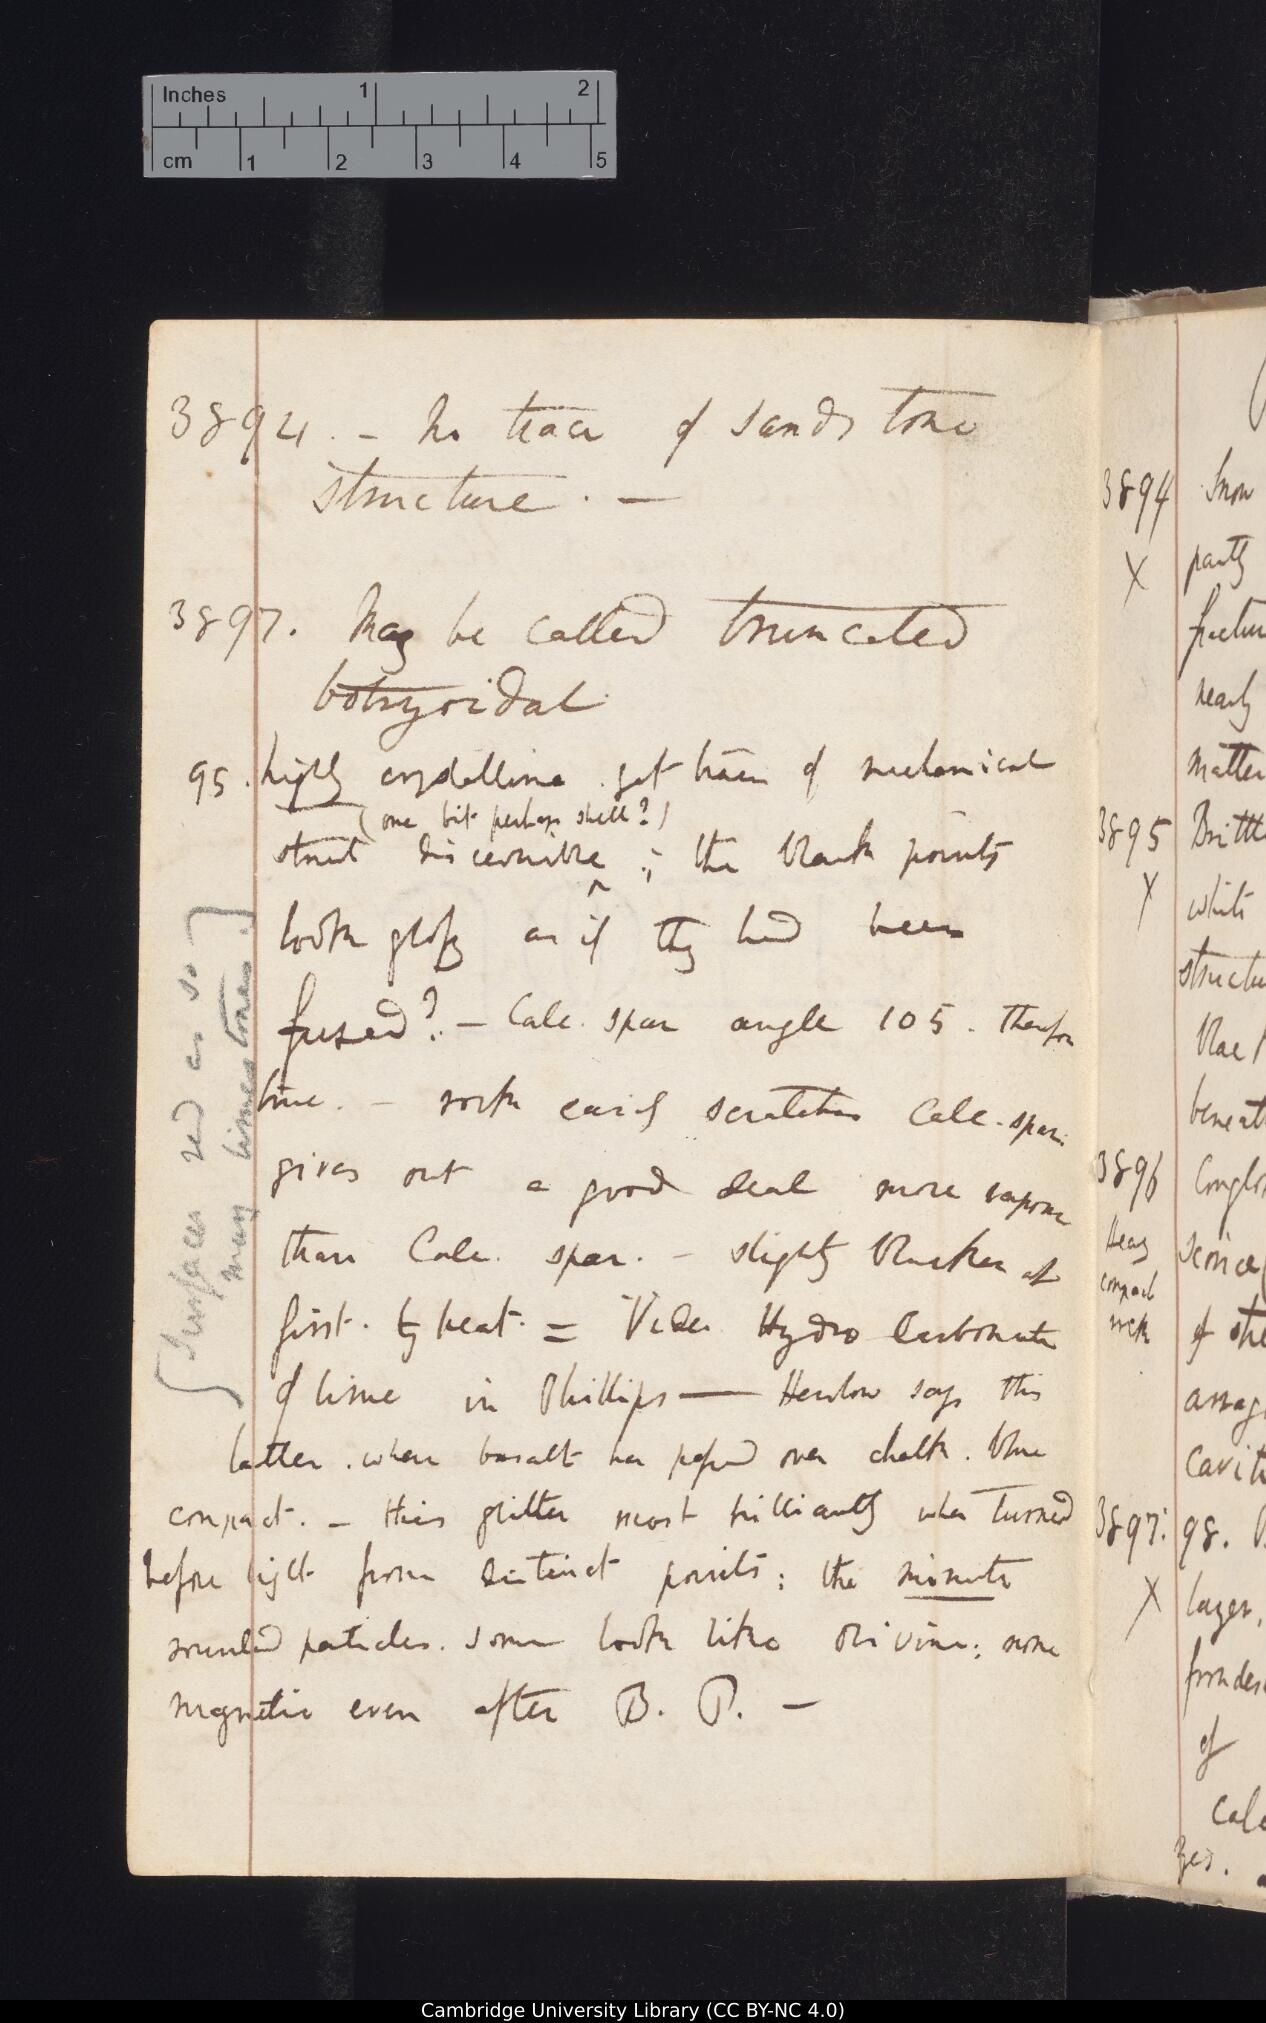 Inches 1 2
cm 1 2 3 4 5
3894. - No trace of sandstone
structure. —
3897. May be called truncated
botryoidal
95. highly crystalline. yet trace of mechanical
(one bit perhaps shell?)
struct discernible ^ ; the black points
look glossy as if they had been
fused?. - Calc. spar angle 105. therefore
true. - rock easily scratches Calc. spar.
gives out a good deal more vapour
than Calc. spar. - slightly blacker at
first. by heat. = Vide Hydro Carbonate
of lime in Phillips — Henslow says this
latter. when basalt has passed over chalk. blue
compact. - this glitter most brilliantly when turned
before light from distinct points: the minute
rounded particles. some look like olivine: none
magnetic even after B. P. —
{Surfaces red as so
many limestones.}
3894 Snow
X partly
fractur
nearly
matter
3895 Brittle
X white
structu
black
beneat
3896 Conglo
Heavy
compact
rock
of she
arrag
cavit
3897: 98.
X layer,
frondes
of
Calc
Yes.
Cambridge University Library (CC BY-NC 4.0)